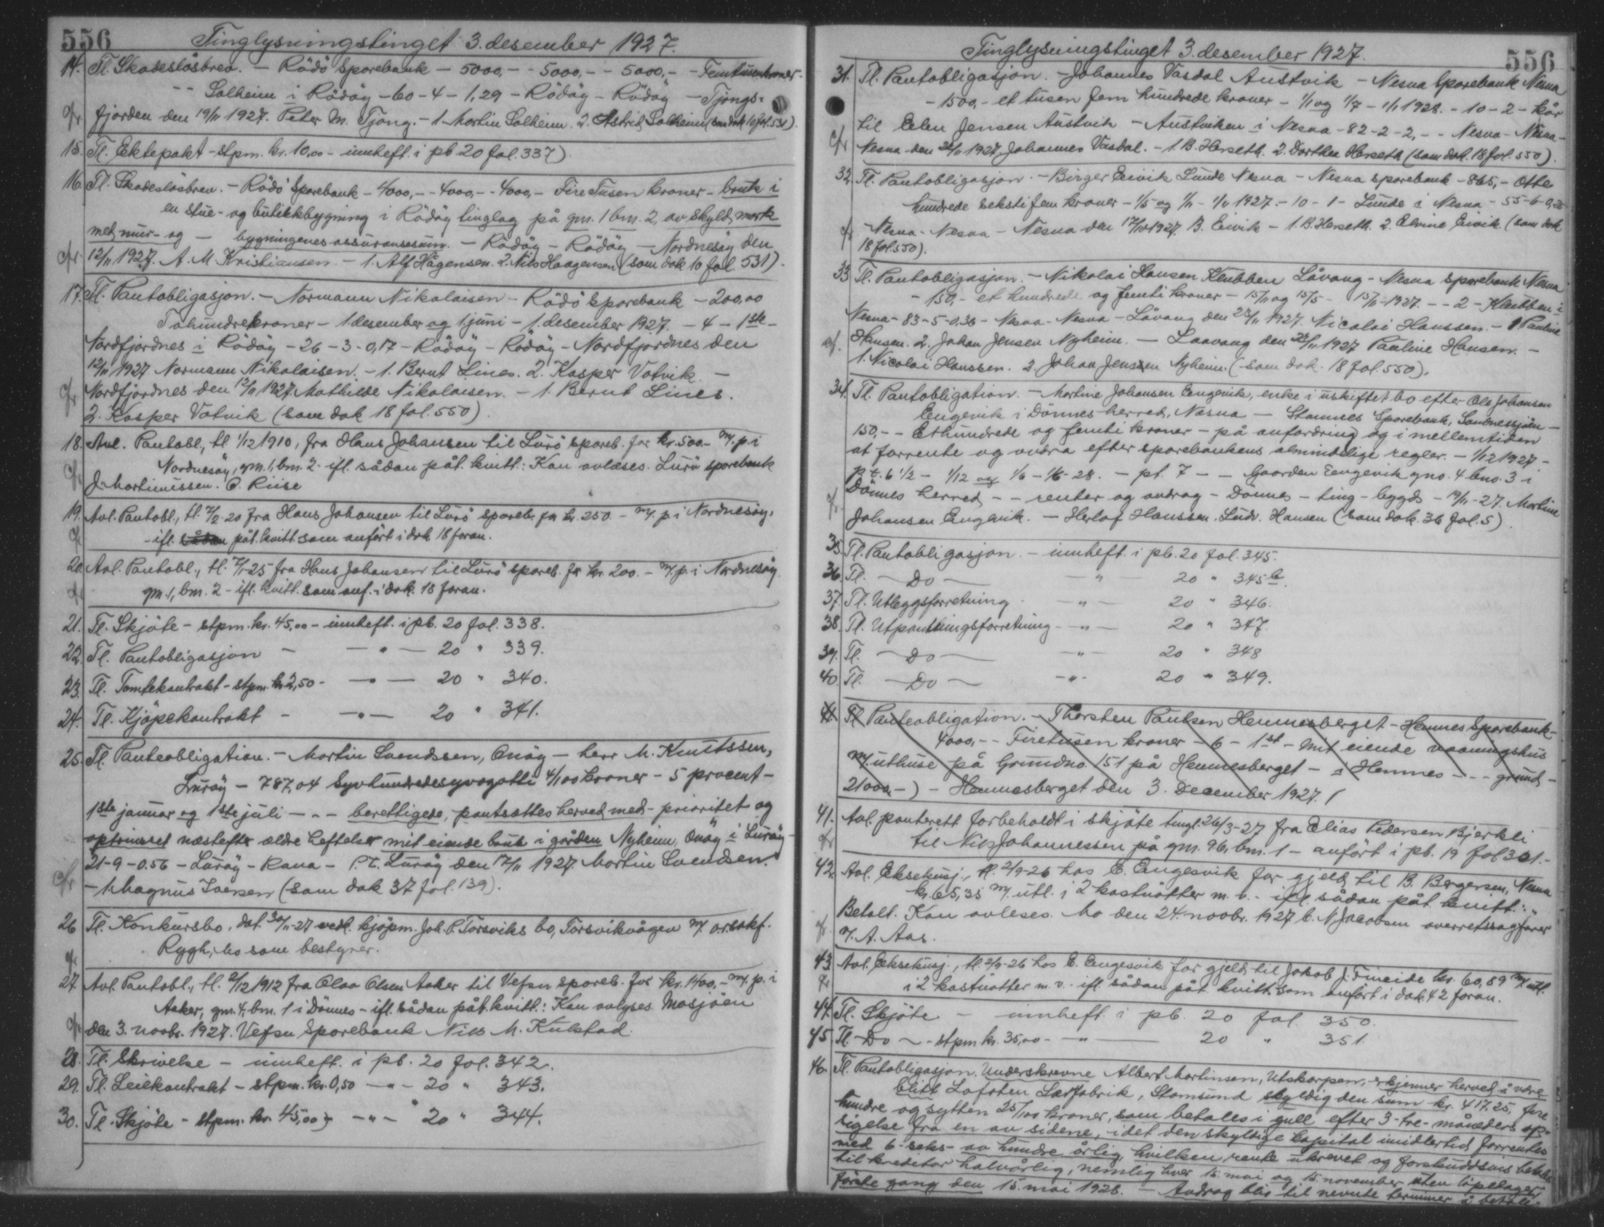 556 Tinglysningstinget 3. desember 1927.
14. Tl. Skadeslösbrev. - Rödö Sparebank - 5000,- - 5000,- - 5000,- - Femtusenkroner -
Solheim i Rödöy - 60 - 4 - 1,29 - Rödöy - Rödöy - Tjongs-
fjorden den 19/11 1927. Peter M. Tjong. - 1. Martin Solheim. 2. Astrid Solheim (som dok 10 fol. 531).
15. Tl. Ektepakt - stpm. kr. 10,00 - innheft. i pb 20 fol. 337)
16. Tl. Skadeslösbrev. - Rödö Sparebank - 4000,- - 4000,- - 4000,- Fire Tusen kroner - bruk i
en stue- og butikkbygning i Rödöy tinglag på gnr. 1 bnr. 2 av skyld mark
med mur- og - bygningenes assuransesum. - Rödöy - Rödöy - Nordnesöy den
12/11 1927. A. M. Kristiansen. - 1. Alf Hågensen. 2. Nils Haagensen (som dok 10 fol 531).
17. Tl. Pantobligasjon. - Normann Nikolaisen - Rödö Sparebank - 200,00
Tohundrekroner - 1 desember og 1 juni - 1. desember 1927. - 4 - 1ste -
Nordfjordnes i Rödöy - 26 - 3 - 0,17 - Rödöy - Rödöy - Nordfjordnes den
12/11 1927 Normann Nikolaisen. - 1. Bernt Lines. 2. Kasper Vatvik. -
Nordfjordnes den 12/11 1927 Mathilde Nikolaisen. - 1. Bernt Lines.
2. Kasper Vatvik (som dok 18 fol. 550).
18. Avl. Pantobl., tl. 1/12 1910, fra Hans Johansen til Lurö spareb. for kr. 500 - m/. p. i
Nordnesöy, gnr. 1, bnr. 2 - ifl. sådan påt. kvitt.: Kan avleses. Lurö sparebank
J. Martinussen. C. Riise
19. Avl. Pantobl., tl. 20 fra Hans Johansen til Lurö spareb. for kr. 250 - m/. p. i Nordnesöy.
- ifl. sådan påt. kvitt. som anfört i dok 18 foran.
20. Avl. Pantobl., tl. 25 fra Hans Johansen til Lurö spareb. for kr. 200. - m/. p. i Nordnesöy
gnr. 1, bnr. 2 - ifl. kvitt. som anf. i dok. 18 foran.
21. Tl. Skjöte - stpm. kr. 45,00 - innheft. i pb. 20 fol. 338.
22. Tl. Pantobligasjon - - " - 20 " 339.
23. Tl. Tomtekontrakt - stpm. kr 2,50 - - " - 20 " 340.
24. Tl. Kjöpekontrakt - - " - 20 " 341.
25. Tl. Panteobligation. - Martin Svendssen, Onöy - herr M. Knutssen,
Luröy - 787,04 Syvhundredesyvogotti 4/100 kroner - 5 procent -
1ste januar og 1ste juli - - - berettigede, pantsættes herved med - prioritet og
optrinsret næstefter ældre heftelser mit eiende bruk i gården Nyheim, Onöy i Luröy -
21 - 9 - 0.56 - Luröy - Rana - P.t. Luröy den 17/11 1927 Martin Svendsen.
- Magnus Iversen (som dok 37 fol. 139).
26. Tl. Konkursbo, dat. 30/11-27 vedk. kjöpm. Joh. P. Torsviks bo, Torsvikvågen m/ orsakf.
Ryggh, Mo som bestyrer.
27. Avl. Pantobl., tl. 1912 fra Olaa Olsen Aaker til Vefsn spareb. for kr. 1400,- m/. p. i
Aaker, gnr. 4, bnr. 1 i Dönnes - ifl. sådan påt. kvitt.: Kan avlyses Mosjöen
den 3. novbr. 1927. Vefsn Sparebank Nils M. Kulstad
28. Tl. Skrivelse - innheft. i pb. 20 fol. 342.
29. Tl. Leiekontrakt - stpm. kr. 0,50 - " - 20 " 343.
30. Tl. Skjöte - stpm. kr. 45,00 - " - 20 " 344.
Tinglysningstinget 3. desember 1927. 556
31. Tl. Pantobligasjon. - Johannes Vasdal Austvik - Nesna Sparebank Nesna
- 1500,- et tusen fem hundrede kroner - 1/1 og 1/7 - 1/1 1928. - 10 - 2 - kår
til Elen Jensen Austvik - Austviken i Nesna - 82 - 2 - 2, - - Nesna - Nesna -
Nesna den 1927 Johannes Vasdal. - 1 B. Herseth. 2. Dorthea Herseth (som dok. 18 fol. 550).
32. Tl. Pantobligasjon. - Birger Eivik Lunde Nesna - Nesna sparebank - 865,- Otte
hundrede sekstifem kroner - 1/5 og 1/11 - 1/11 1927 - 10 - 1 - Lunde i Nesna - 55 - 6 -
- Nesna - Nesna - Nesna den 1927. B. Eivik - 1 B. Herseth. 2. Elvine Eivik (som dok
18 fol. 550).
33. Tl. Pantobligasjon. - Nikolai Hansen Klubben Låvong - Nesna sparebank Nesna
- 150,- et hundrede og femti kroner - 15/11 og 15/5 - 15/11-1927 - - 2 - Klubben i
Nesna - 83 - 5 - 0,36 - Nesna - Nesna - Låvong den 1927. Nicolai Hanssen - 1 Pauline
Hansen. 2. Johan Jensen Nyheim. - Laavong den 1927 Pauline Hansen. -
1. Nicolai Hanssen. 2. Johan Jenssen Nyheim. (som dok. 18 fol. 550).
34. Tl. Pantobligation. - Martine Johansen Engevik, enke i uskiftet bo efter Ole Johansen
Engevik i Dönnes herred, Nesna - Stamnes Sparebank, Sandnessjöen -
150,- - Ethundrede og femti kroner - på anfordring og i mellemtiden
at forrente og avdra efter sparebankens almindelige regler - 1/12 1927 -
p.t. 6 1/2 - 1/12 og 1/6 - 1/6-28. - pt. 7 - - Gaarden Engevik gno. 4 bno. 3 i
Dönnes herred - - renter og avdrag - Dönnes - ting - bygds - 19/11-27. Martine
Johansen Engevik. - Herlof Hanssen. Ludv. Hansen (som dok 36 fol. 5).
35. Tl. Pantobligasjon. - innheft. i pb. 20 fol. 345.
36. Tl. - Do - - " - 20 " 345b.
37. Tl. Utleggsforretning - " - 20 " 346.
38. Tl. Utpantningsforretning - " - 20 " 347.
39. Tl. - Do - - " - 20 " 348
40. Tl. - Do - - " - 20 " 349.
41. Tl. Panteobligation. - Thorsten Paulsen Hemnesberget - Hemnes Sparebank -
4000,- - Firetusen kroner - 6 - 1ste - mit eiende vaaningshus
m/ uthuse på Grundno 151 på Hemnesberget - i Hemnes - - - grund -
21000,-) - Hemnesberget den 3. December 1927. (
41. Avl. panterett forbeholdt i skjöte tingl. 26/3-27 fra Elias Pedersen Bjerkli
til Nils Johannessen på gnr. 96, bnr. 1 - anfört i pb. 19 fol 301. -
42. Avl. Eksekusj., tl. 26 hos E. Engesvik for gjeld til B. Bergersen, Nesna
kr. 65,35 m/ utl. i 2 kastnötter m. v. - ifl. sådan påt. kvitt.:
Betalt. Kan avleses. Mo den 24 novbr. 1927 E. N. Jacobsen overrettssagförer
v. A. Aas.
43. Avl. Eksekusj., tl. 26 hos E. Engesvik for gjeld til Jakob J. Fmeide kr. 60,89 m/ utl.
i 2 kastnötter m. v. ifl. sådan påt. kvitt. som anfört i dok 42 foran.
44. Tl. Skjöte - innheft i pb. 20 fol. 350.
45. Tl. - Do - - stpm. kr. 35,00 - - " - 20 " 351
46. Tl. Pantobligasjon. Underskrevne Albert Martinsen, Utskarpen, erkjenner herved å være
blitt Lofoten Læstfabrik, Stamsund skyldig den sum kr. 417.25, fire
hundre og sytten 25/100 kroner, som betales i gull efter 3-tre-måneders op-
sigelse fra en av sidene, idet den skyldige kapital imidlertid forrentes
med 6-seks- av hundre årlig, hvilken rente ukrevet og forskuddsvis betales
til kreditor halvårlig, nemlig hver 15 mai og 15 november uten löpedager,
förste gang den 15. mai 1928. - Avdrag blir til nevnte terminer å betale